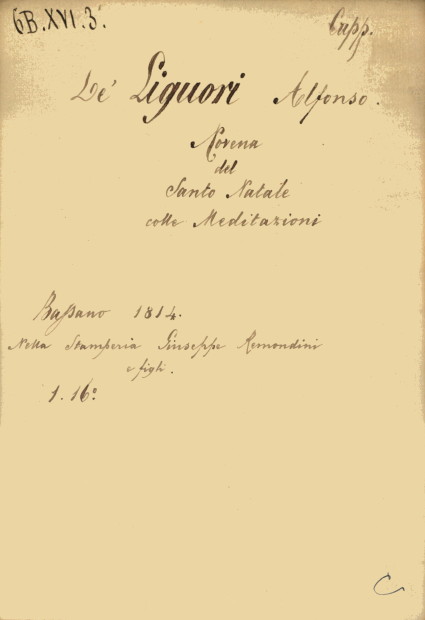 6B.XVI.3. Capp.
De' Liguori Alfonso.
Novena
del
Santo Natale
colle Meditazioni
Baſsano 1814.
Nella Stamperia Giuseppe Remondini
e figli.
1. 16.°
C